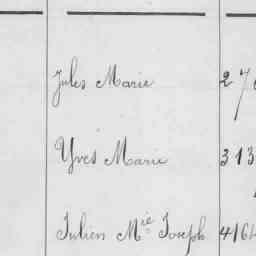 Jules Marie
Yves Marie 313
Julien Mie Joseph 4164